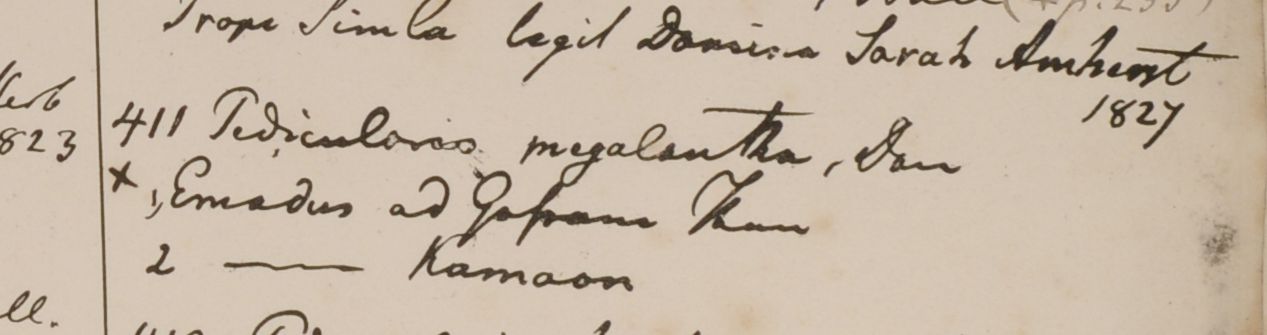 Prope Simla legit Domina Sarah Amherst
1827
Herb
823
411 Pedicularis megalantha, Don
+ 1, Emodus ad Gosain Than
2 —— Kamaon
ll.